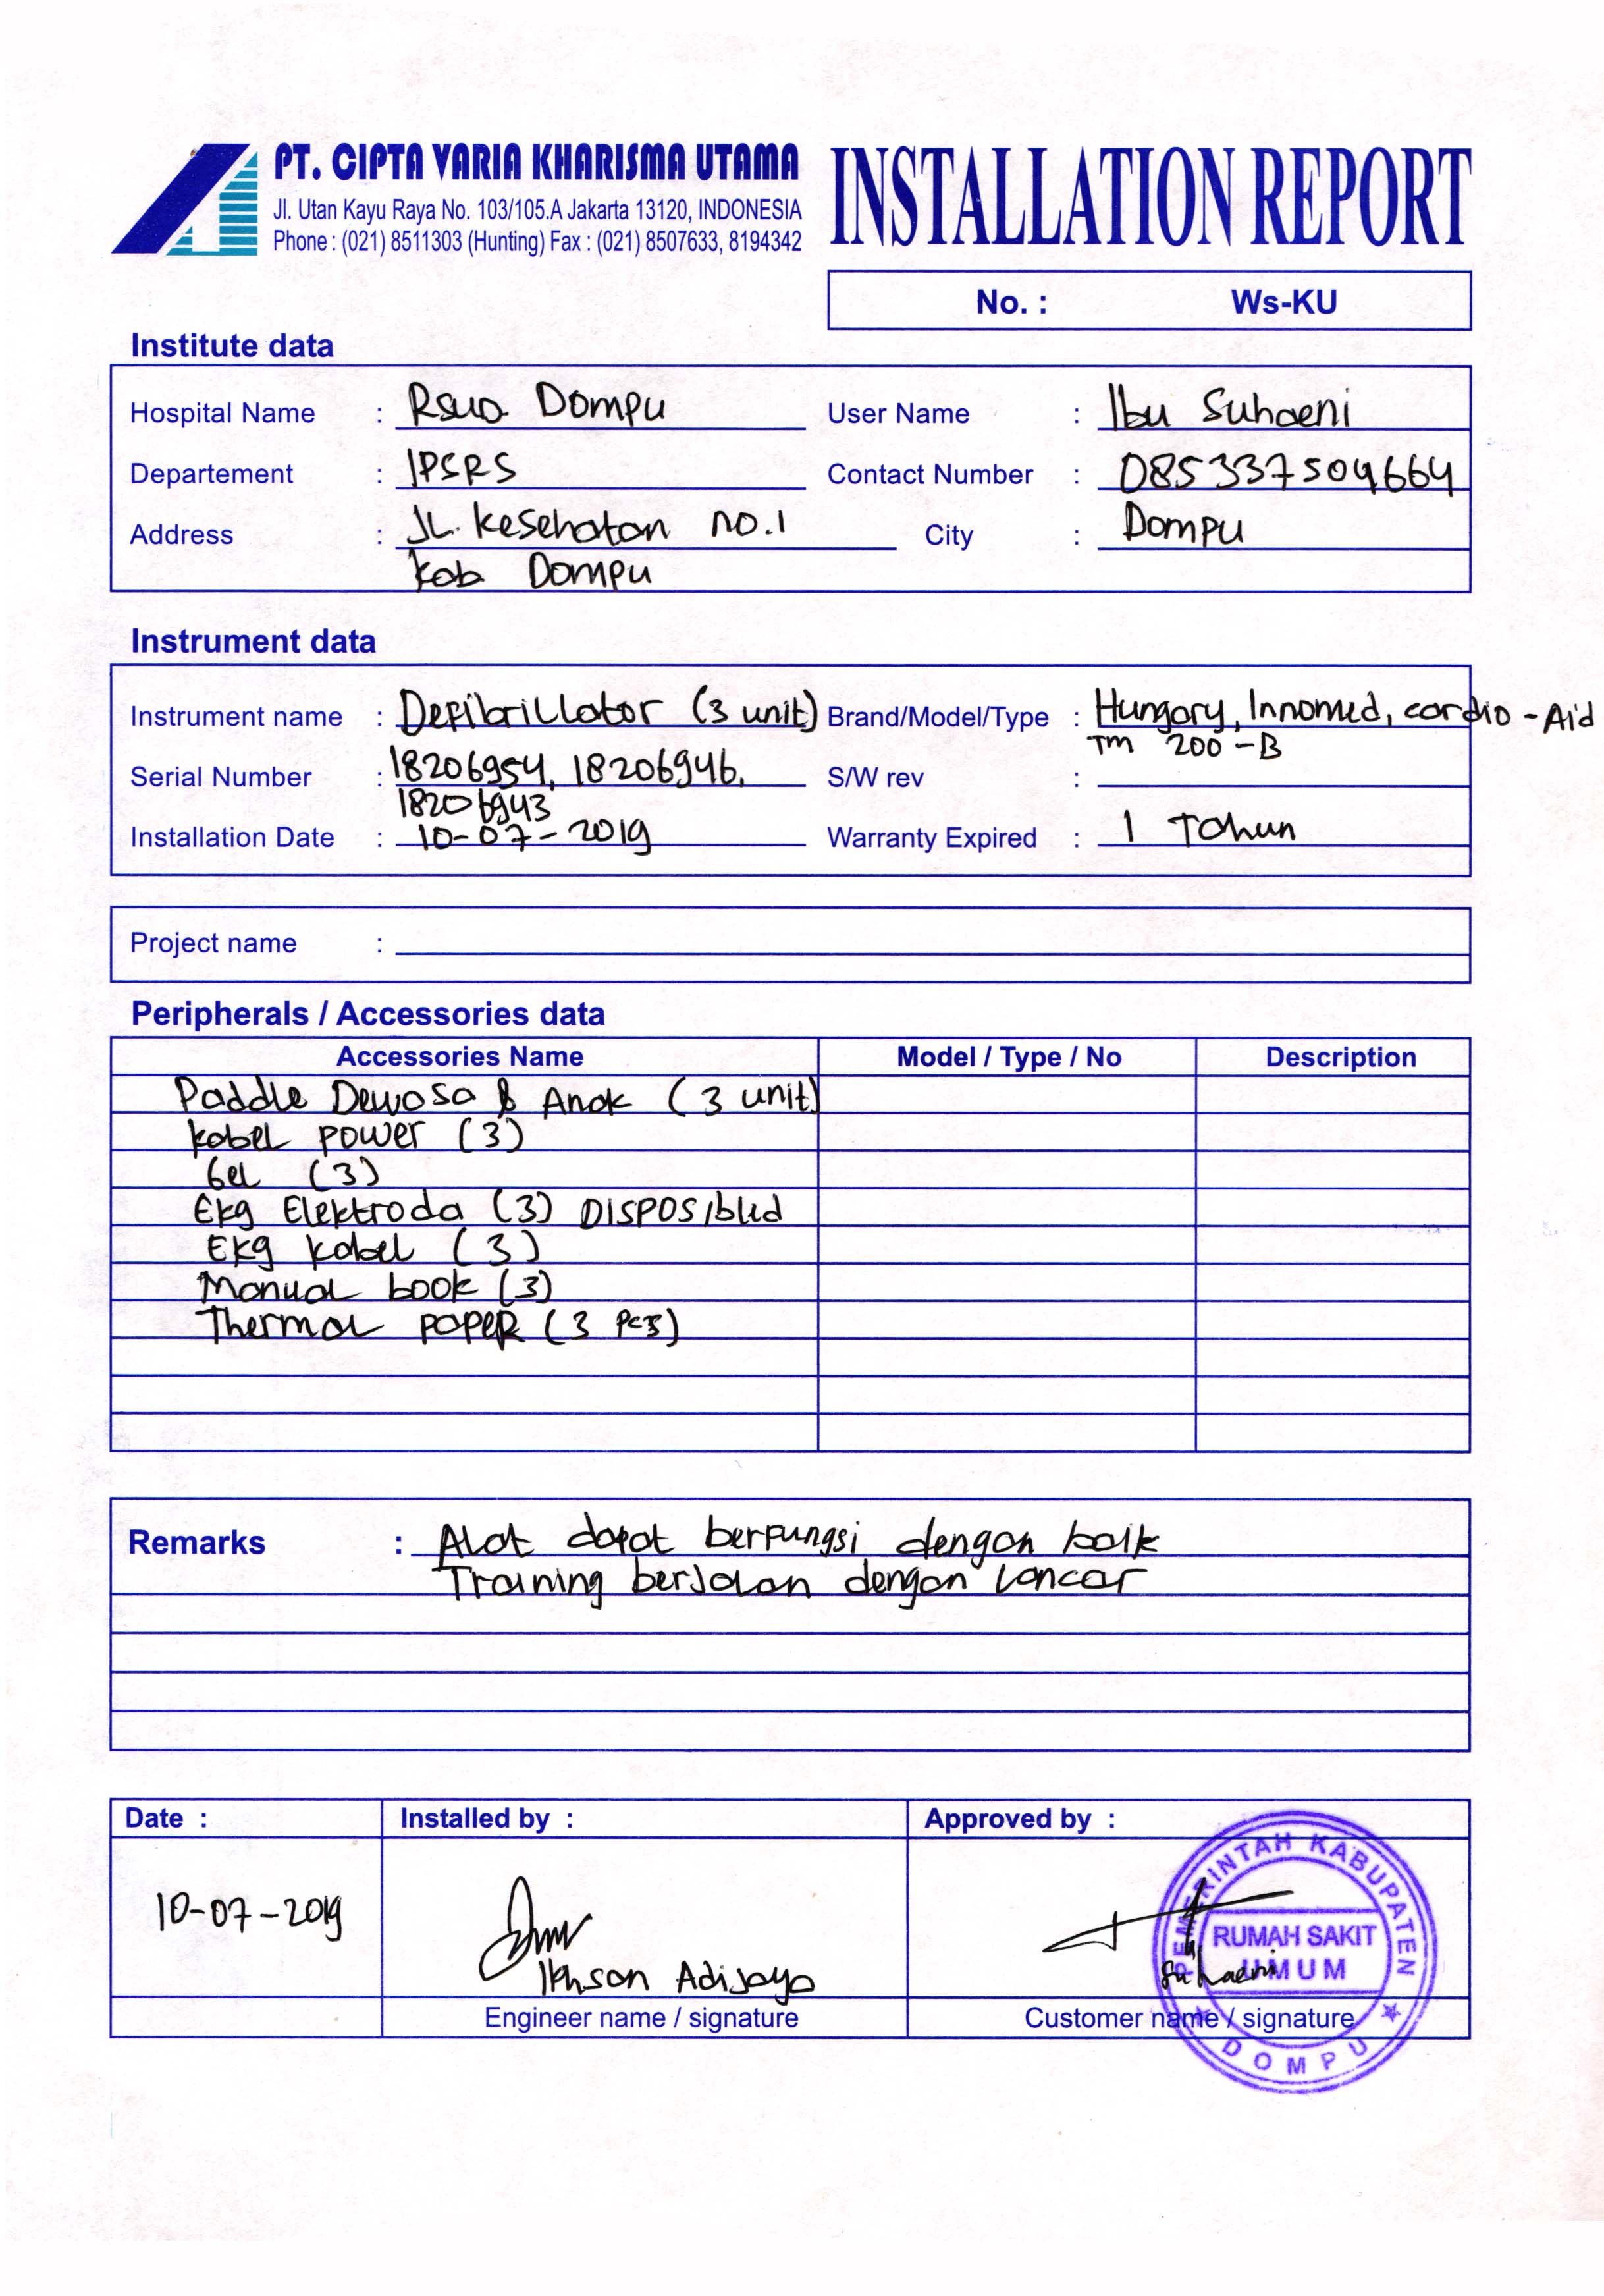 PT. CIPTA VARIA KHARISMA UTAMA
Jl. Utan Kayu Raya No. 103/105.A Jakarta 13120, INDONESIA
Phone : (021) 8511303 (Hunting) Fax : (021) 8507633, 8194342
INSTALLATION REPORT
No. : Ws-KU
Institute data
Hospital Name : RSUD Dompu User Name : Ibu Suhaeni
Departement : IPSRS Contact Number : 085337504664
Address : JL. Kesehatan no.1 City : Dompu
kab Dompu
Instrument data
Instrument name : Defibrillator (3 unit) Brand/Model/Type : Hungary, Innomed, cardio-Aid
TM 200-B
Serial Number : 18206954, 18206946, S/W rev :
18206943
Installation Date : 10-07-2019 Warranty Expired : 1 Tahun
Project name :
Peripherals / Accessories data
Accessories Name Model / Type / No Description
Paddle Dewasa & Anak (3 unit)
kabel power (3)
Gel (3)
Ekg Elektroda (3) DISPOSIbled
Ekg kabel (3)
Manual book (3)
Thermal paper (3 Pcs)
Remarks : Alat dapat berfungsi dengan baik
Training berjalan dengan lancar
Date : Installed by : Approved by :
10-07-2019
Ikhsan Adijaya
Suhaeni
Engineer name / signature Customer name / signature
PEMERINTAH KABUPATEN
RUMAH SAKIT
UMUM
DOMPU